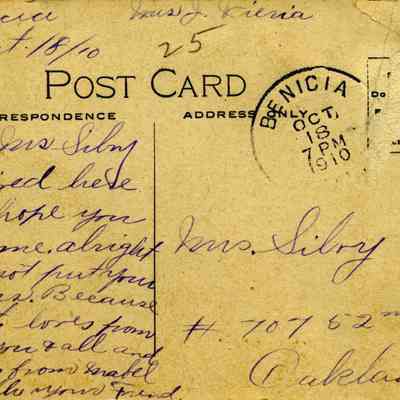 Mrs J. Vieria
t. 18/10
25
POST CARD
RESPONDENCE
ADDRESS ONLY
BENICIA
OCT.
18
7 PM
1910
Mrs Silvy
ved here
hope you
me. alright
not put your
s. Because
loves from
you & all and
from Mabel
your Friend
Mrs. Silvy
#. 707 52
Oakla